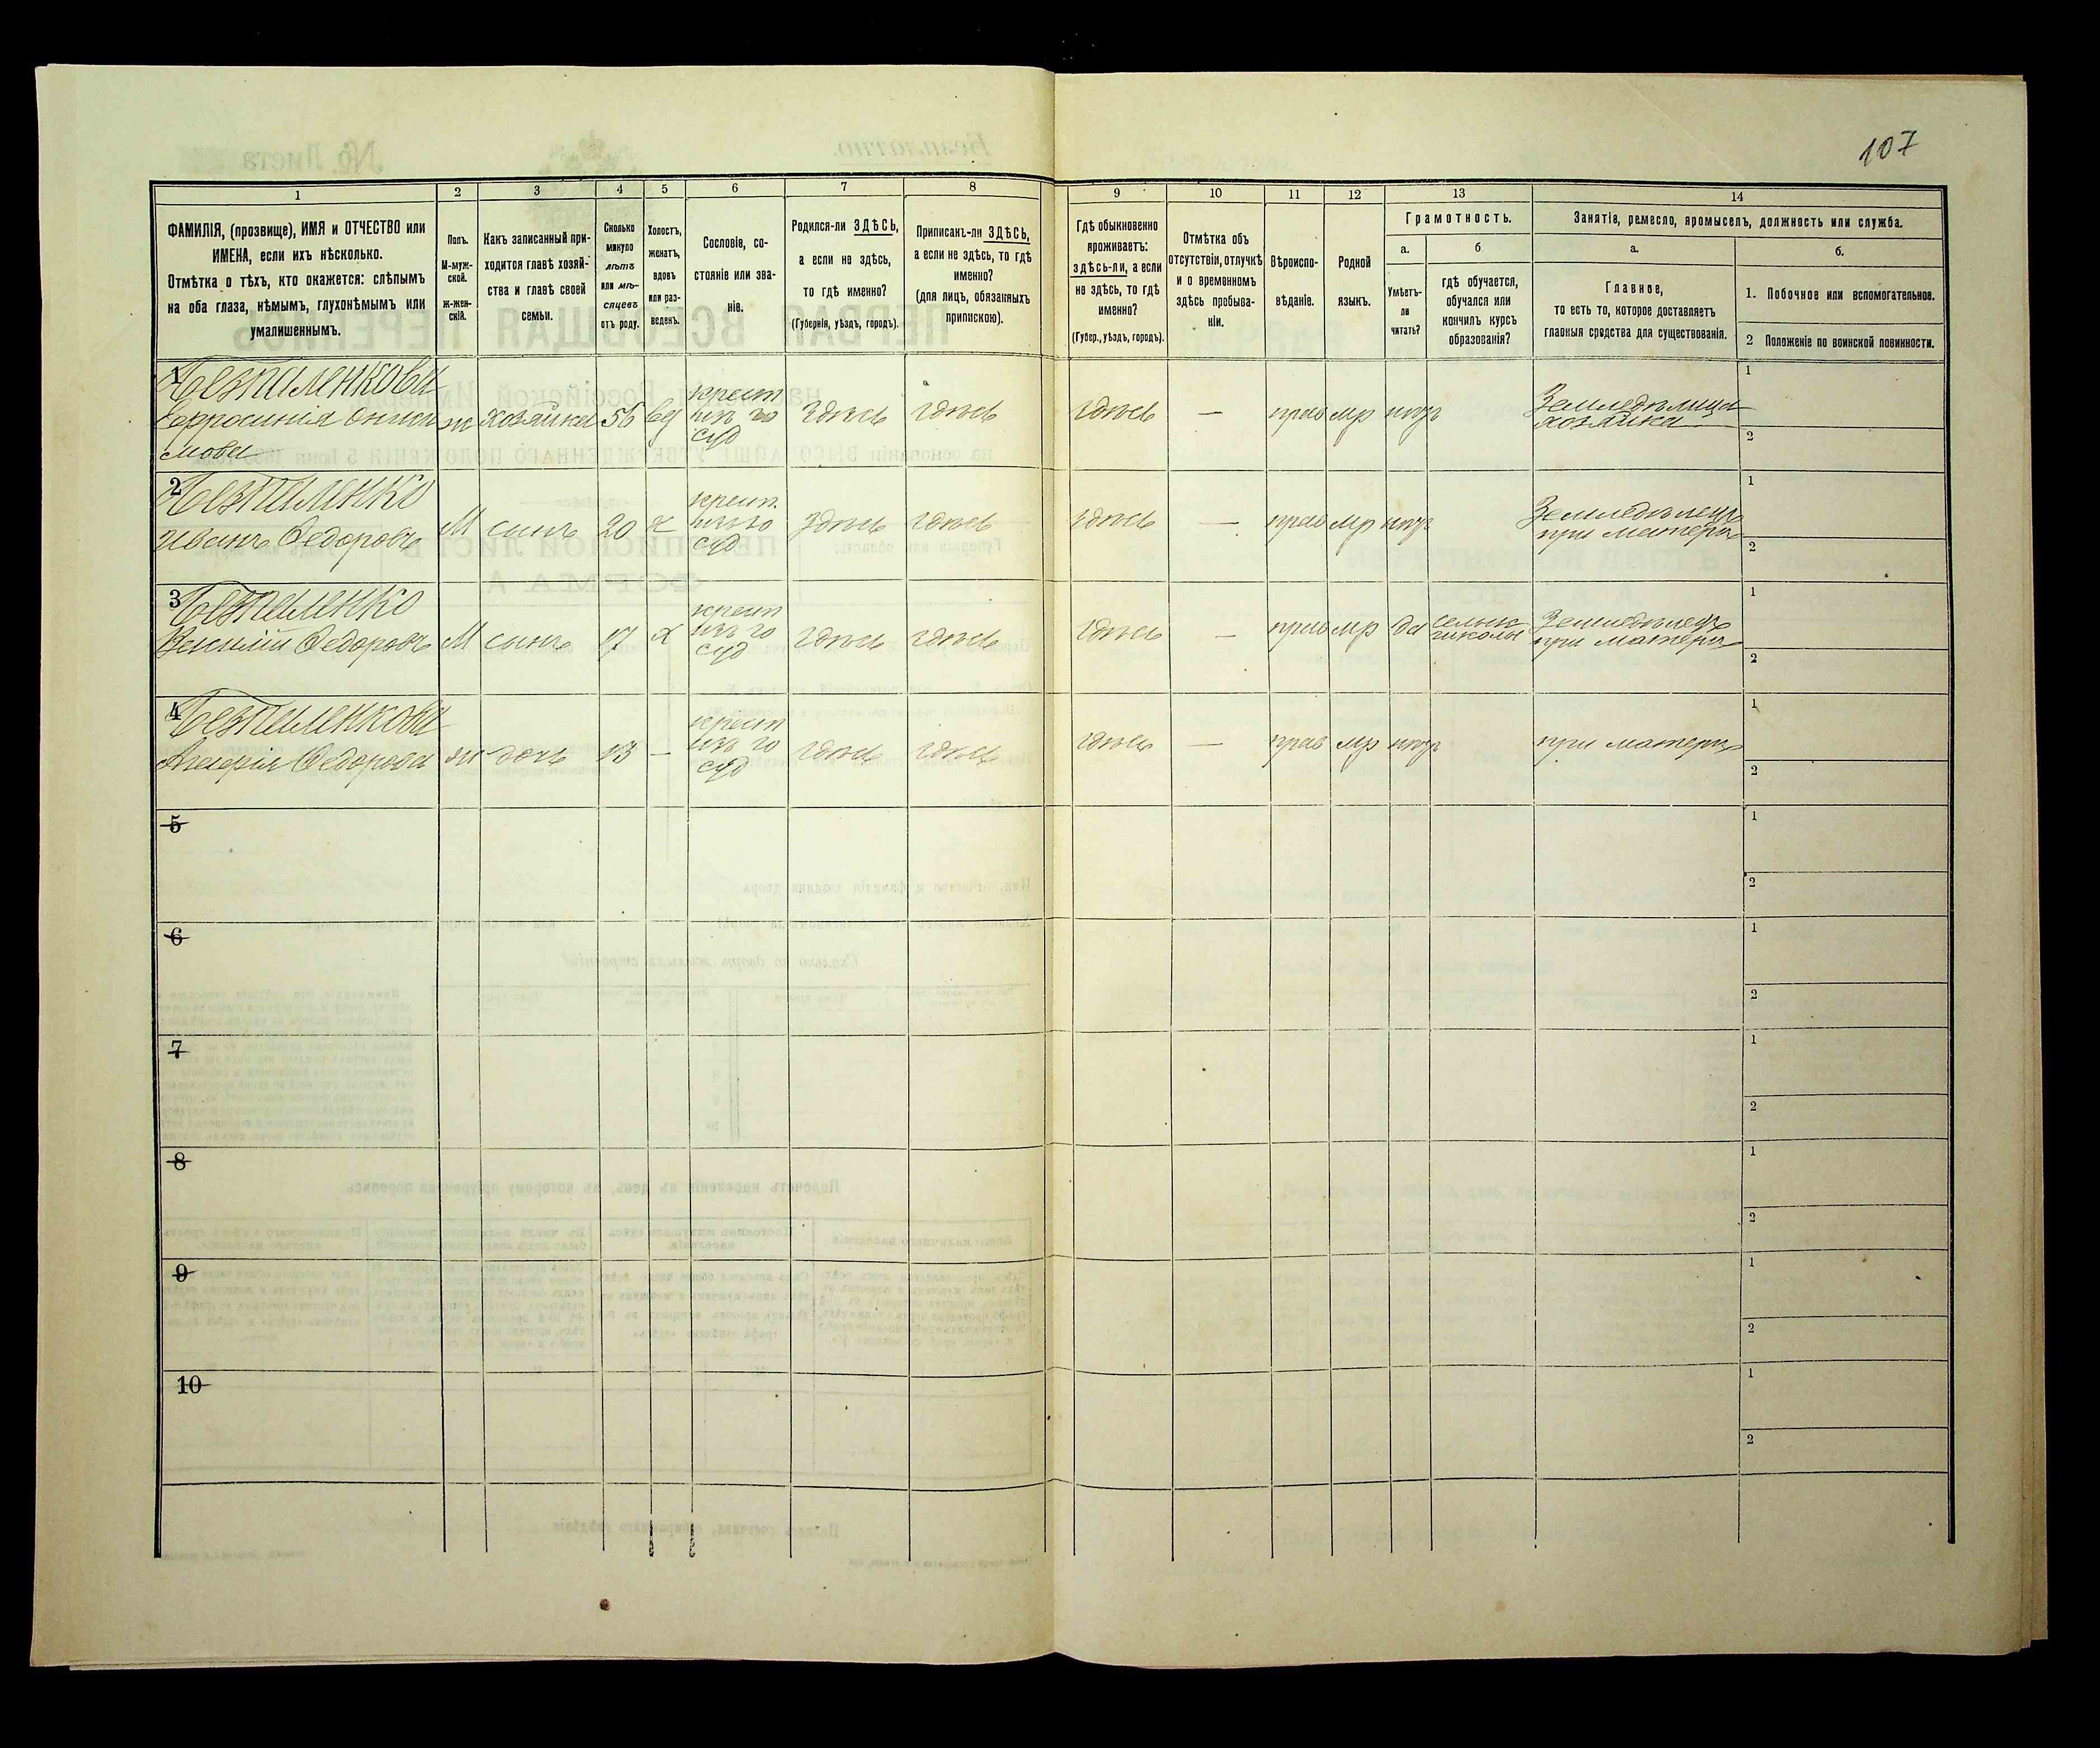 107
1 2 3 4 5 6 7 8 9 10 11 12 13 14
ФАМИЛІЯ, (прозвище), ИМЯ и ОТЧЕСТВО или
ИМЕНА, если ихъ нѣсколько.
Отмѣтка о тѣхъ, кто окажется: слѣпымъ
на оба глаза, нѣмымъ, глухонѣмымъ или
умалишеннымъ.
Полъ.
М-муж-
ской.
ж-жен-
скій.
Какъ записанный при-
ходится главѣ хозяй-
ства и главѣ своей
семьи.
Сколько
минуло
лѣтъ
или мѣ-
сяцевъ
отъ роду.
Холостъ,
женатъ,
вдовъ
или раз-
веденъ.
Сословіе, со-
стояніе или зва-
ніе.
Родился-ли ЗДѢСЬ,
а если не здѣсь,
то гдѣ именно?
(Губернія, уѣздъ, городъ).
Приписанъ-ли ЗДѢСЬ,
а если не здѣсь, то гдѣ
именно?
(для лицъ, обязанныхъ
припискою).
Гдѣ обыкновенно
проживаетъ:
здѣсь-ли, а если
не здѣсь, то гдѣ
именно?
(Губер., уѣздъ, городъ).
Отмѣтка объ
отсутствіи, отлучкѣ
и о временномъ
здѣсь пребыва-
ніи.
Вѣроиспо-
вѣданіе.
Родной
языкъ.
Грамотность.
а.
Умѣетъ-
ли
читать?
б
гдѣ обучается,
обучался или
кончилъ курсъ
образованія?
Занятіе, ремесло, промыселъ, должность или служба.
а.
Главное,
то есть то, которое доставляетъ
главныя средства для существованія.
б.
1. Побочное или вспомогательное.
2 Положеніе по воинской повинности.
1
Ефросинія Аниси
мова
ж хозяйка 56 вд
крест
изъ го
суд
здѣсь здѣсь здѣсь — прав мр нѣтъ
Земледѣлица
хозяйка
1
2
2
Иванъ Федоровъ
М сынъ 20 х
крест.
изъ го
суд
здѣсь здѣсь здѣсь — прав мр нѣтъ
Земледѣлецъ
при матери
1
2
3
Василій Федоровъ
М сынъ 17 х
крест
изъ го
суд
здѣсь здѣсь здѣсь — прав мр да
сельск
школы
Земледѣлецъ
при матери
1
2
4
Федорова
ж дочь 13 —
крест
изъ го
суд
здѣсь здѣсь здѣсь — прав мр нѣтъ
при матери
1
2
5
1
2
6
1
2
7
1
2
8
1
2
9
1
2
10
1
2